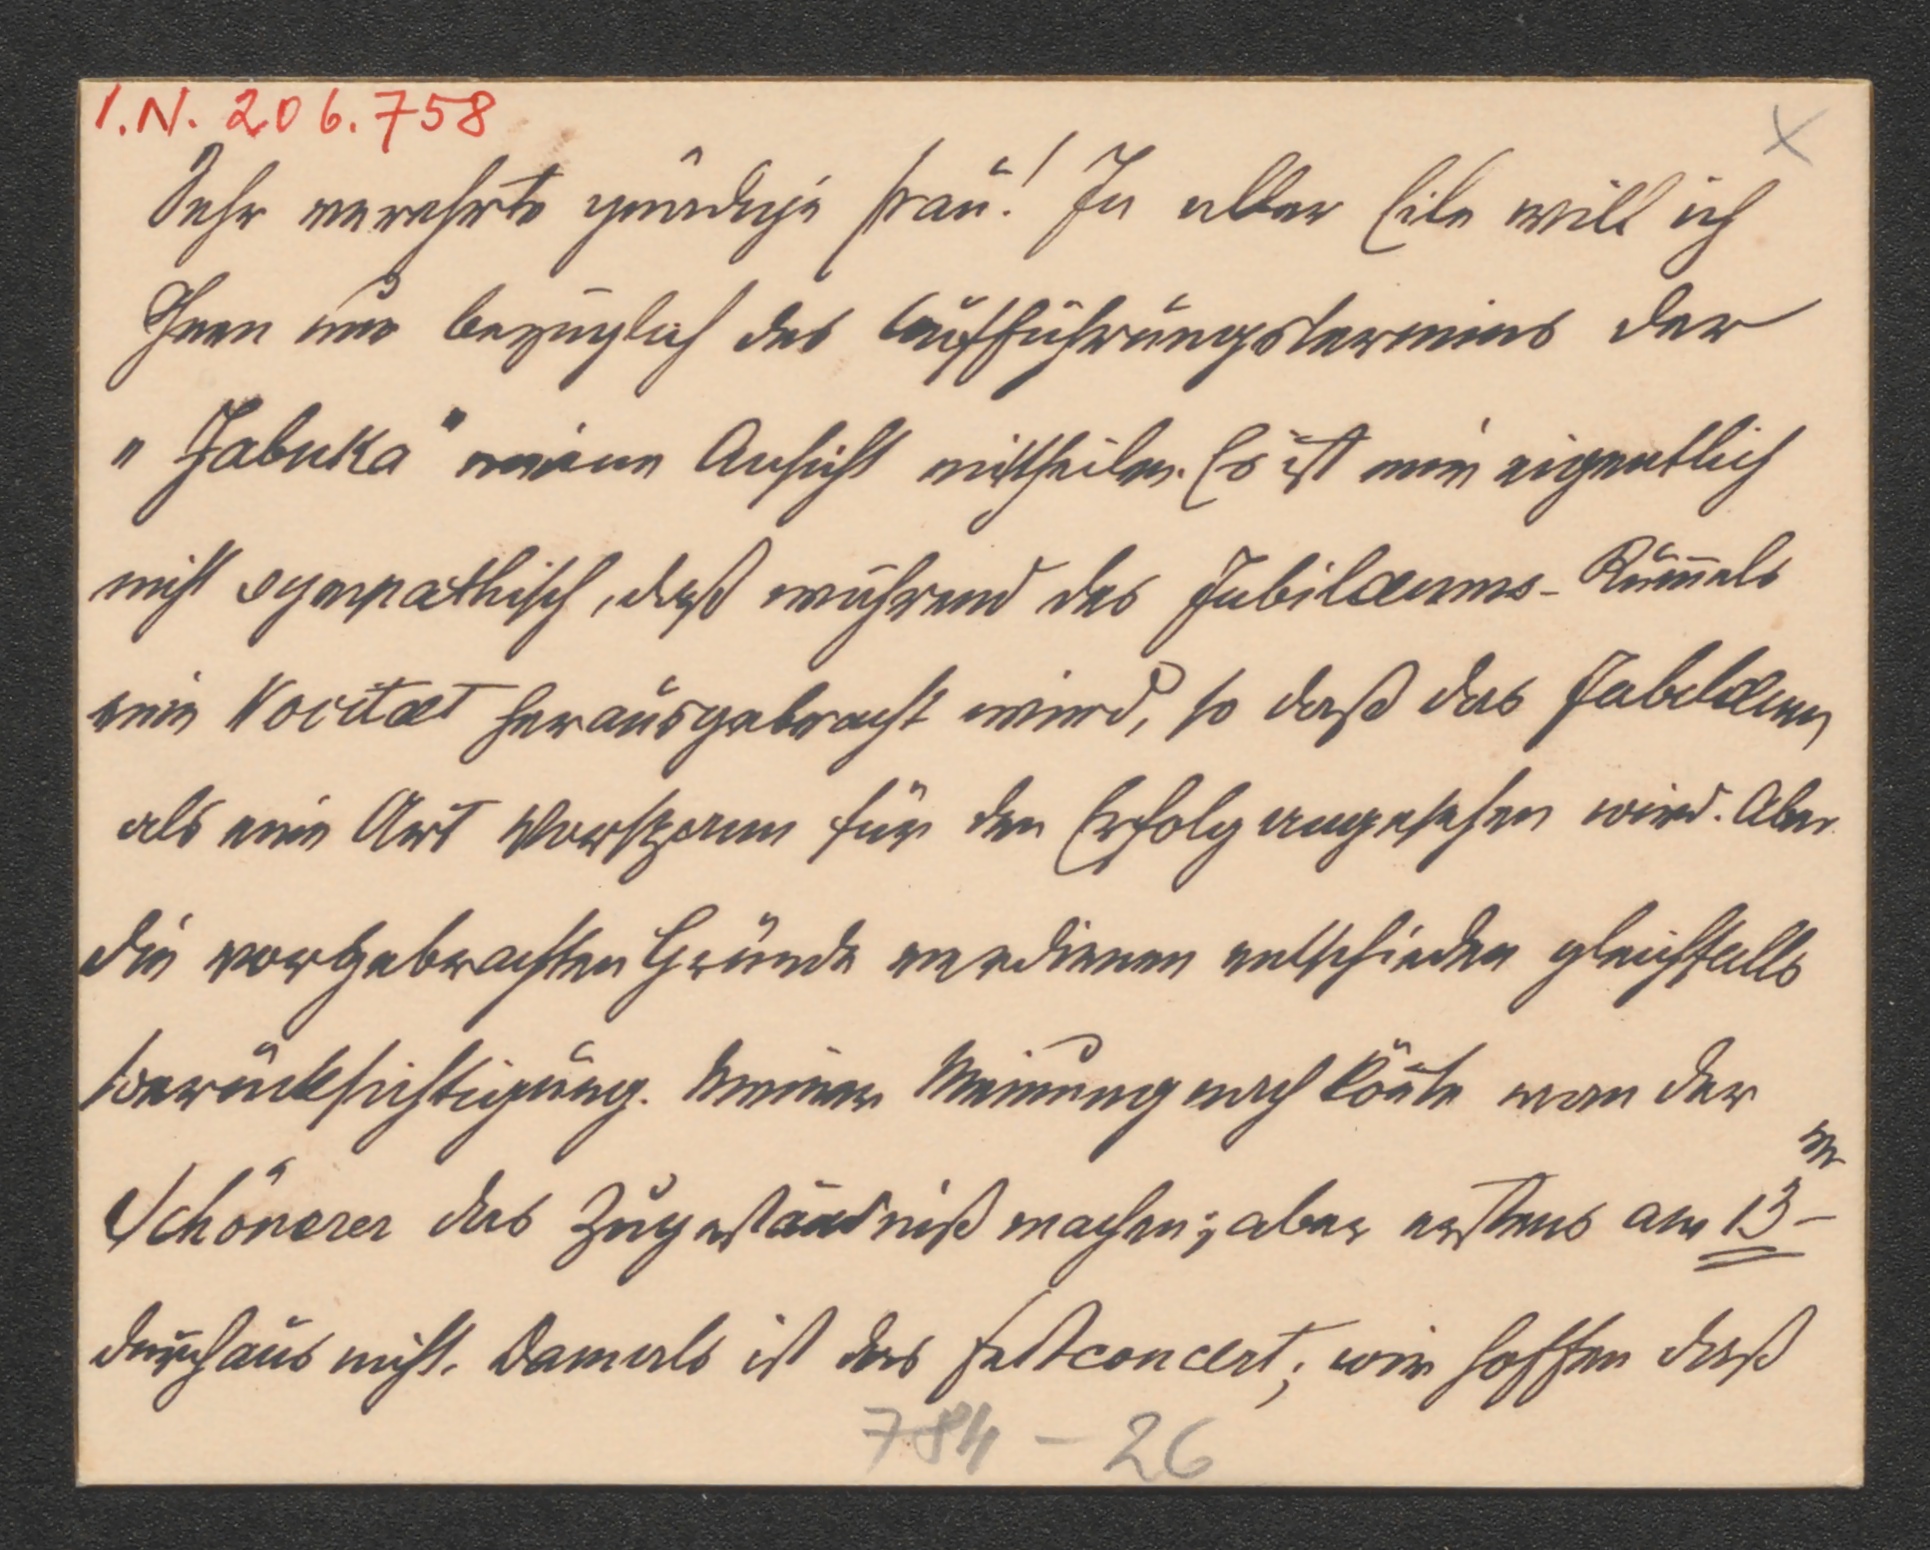 I.N. 206.758
x
Sehr verehrte gnädige Frau! In aller Eile will ich
Ihnen nur bezüglich des Aufführungstermins der
„Jabuka" meine Ansicht mittheilen. Es ist mir eigentlich
nicht sympathisch, daß während des Jubilæums-Rum̄els
eine Novitæt herausgebracht wird, so daß das Jubilæum
als eine Art Vorspann für den Erfolg angesehen wird. Aber
die vorgebrachten Gründe verdienen entschieden gleichfalls
Berücksichtigung. Meiner Meinung nach kön̄te man der
Schönerer das Zugeständniß machen; aber erstens am 13ten –
durchaus nicht. Damals ist das Festconcert; wir hoffen daß
784 – 26